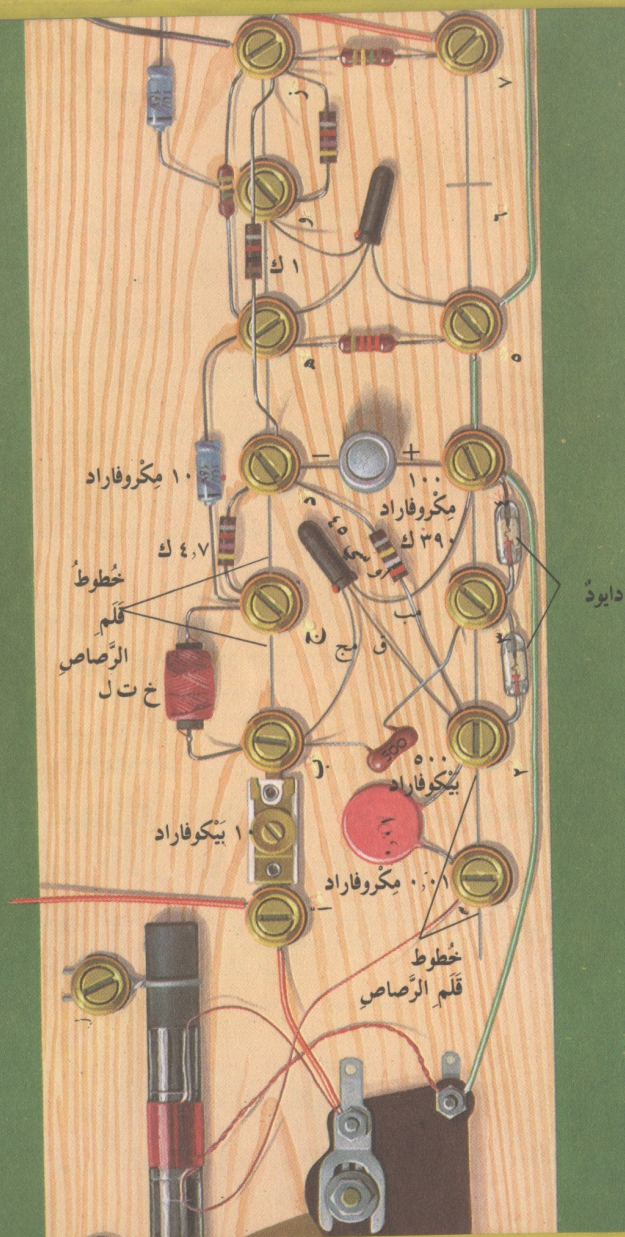 ٧
ز
٦
و
١ ك
٥
ه
+
١٠٠
مِكْروفاراد
١٠ مِكْروفاراد
د
٤
٣٩٠ ك
٤,٧ ك
خُطوطُ
قَلَمِ
الرَّصاصِ
دايودٌ
مب
ق
مج
ج
٣
خ ت ل
ب
500
٥٠٠
بَيْكوفاراد
٢
١٠ بَيْكوفاراد
٠,٠١
٠,٠١ مِكْروفاراد
أ
خُطوط
قَلَمِ الرَّصاصِ